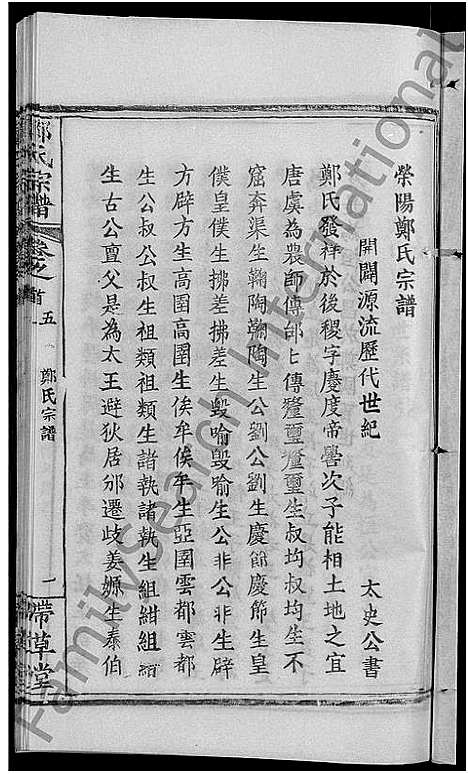 滎陽鄭氏宗譜
開闢源流歷代世紀
太史公書
鄭氏發祥於後稷字慶度帝嚳次子能相土地之宜
唐虞為農師傳邰七傳𨤲璽𨤲璽生叔均叔均生不
窟奔渠生鞠陶鞠陶生公劉公劉生慶節慶節生皇
僕皇僕生拂差拂差生毀喻毀喻生公非公非生辟
方辟方生高圉高圉生侯牟侯牟生亞圉雲都雲都
生公叔公叔生祖類祖類生諸執諸執生組紺組紺
生古公亶父是為太王避狄居邠遷歧姜嫄生泰伯
鄭氏宗譜
卷之首
五
鄭氏宗譜
一
帶草堂
FamilySearch International